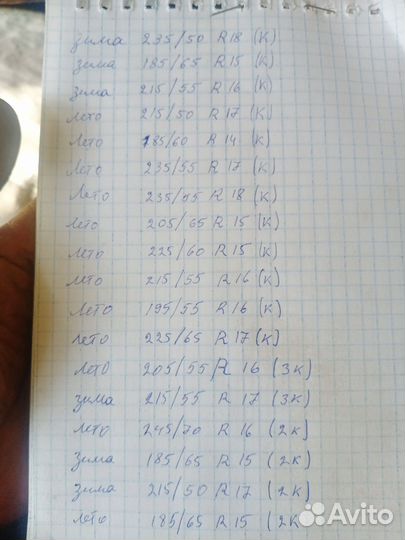 зима 235/50 R 18 (к)
зима 185/65 R 15 (к)
зима 215/55 R 16 (к)
лето 215/50 R 17 (к)
лето 185/60 R 14 (к)
лето 235/55 R 17 (к)
лето 235/55 R 18 (к)
лето 205/65 R 15 (к)
лето 225/60 R 15 (к)
лето 215/55 R 16 (к)
лето 195/55 R 16 (к)
лето 225/65 R 17 (к)
лето 205/55 R 16 (3к)
зима 215/55 R 17 (3к)
лето 245/70 R 16 (2к)
зима 185/65 R 15 (2к)
зима 215/50 R 17 (2к)
лето 185/65 R 15 (2к
Avito